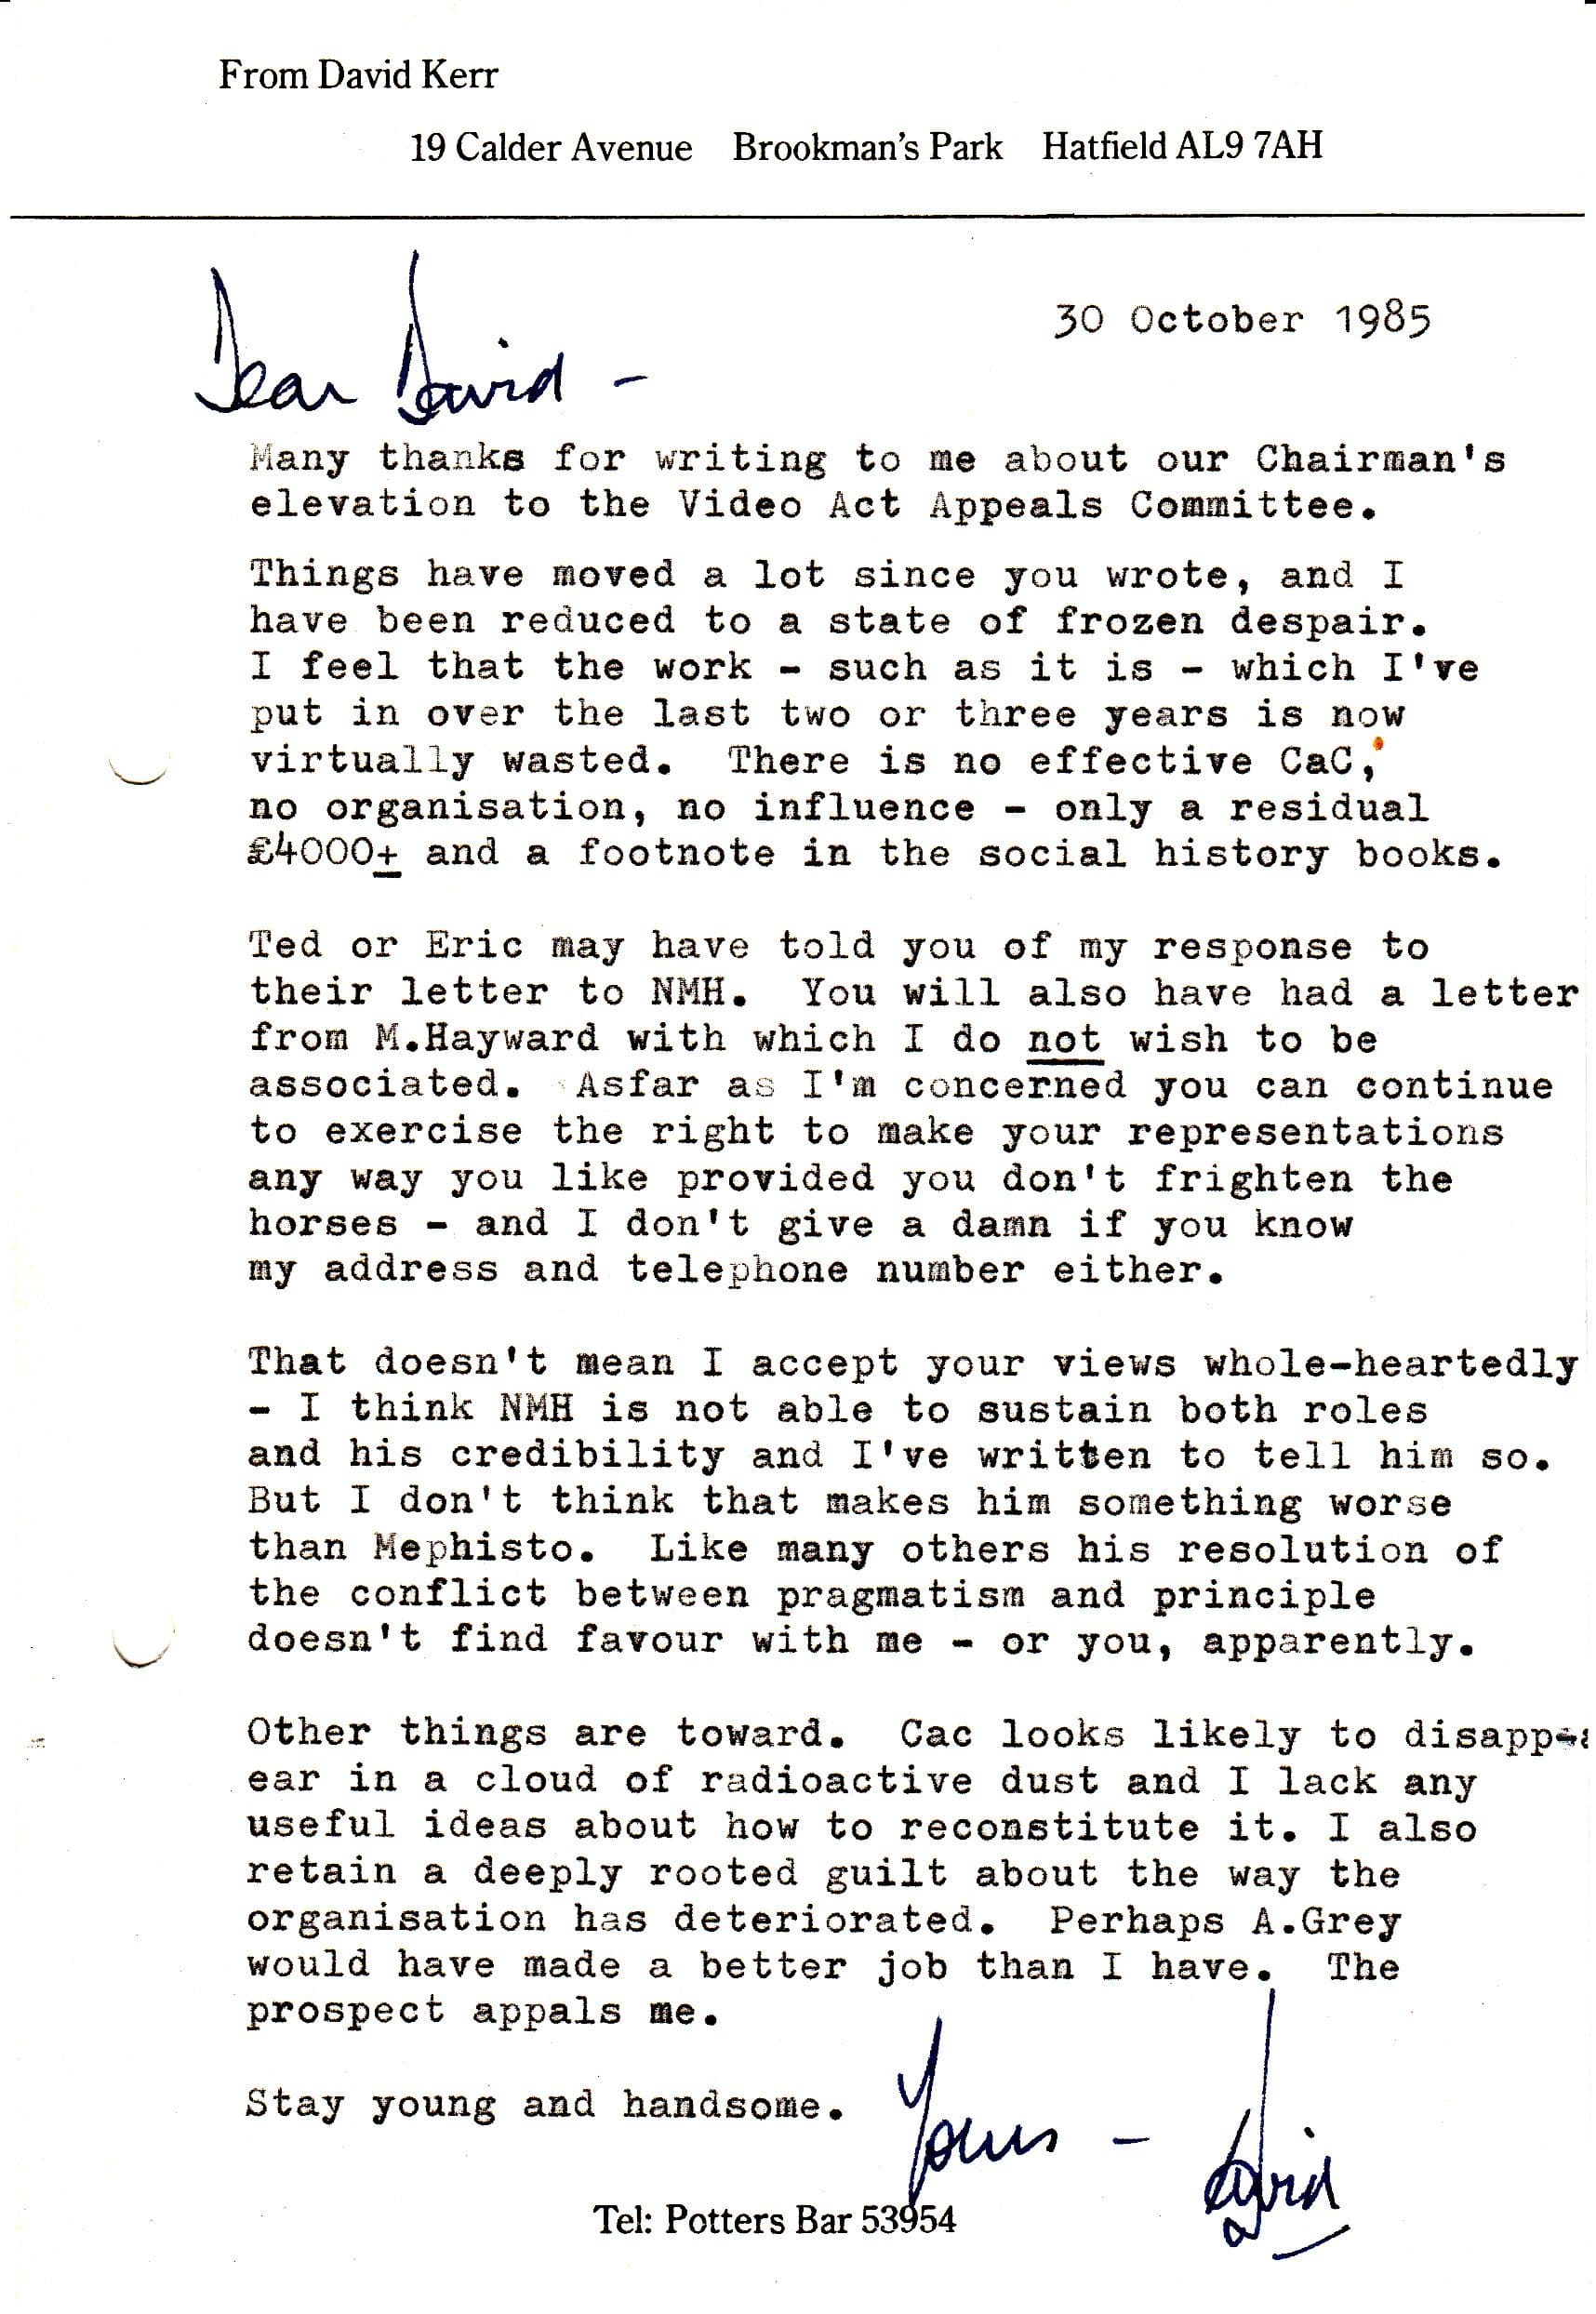 From David Kerr
19 Calder Avenue Brookman's Park Hatfield AL9 7AH
30 October 1985
Dear David -
Many thanks for writing to me about our Chairman's
elevation to the Video Act Appeals Committee.
Things have moved a lot since you wrote, and I
have been reduced to a state of frozen despair.
I feel that the work - such as it is - which I've
put in over the last two or three years is now
virtually wasted. There is no effective CaC,
no organisation, no influence - only a residual
£4000+ and a footnote in the social history books.
Ted or Eric may have told you of my response to
their letter to NMH. You will also have had a letter
from M.Hayward with which I do not wish to be
associated. Asfar as I'm concerned you can continue
to exercise the right to make your representations
any way you like provided you don't frighten the
horses - and I don't give a damn if you know
my address and telephone number either.
That doesn't mean I accept your views whole-heartedly
- I think NMH is not able to sustain both roles
and his credibility and I've written to tell him so.
But I don't think that makes him something worse
than Mephisto. Like many others his resolution of
the conflict between pragmatism and principle
doesn't find favour with me - or you, apparently.
Other things are toward. Cac looks likely to disapp-
ear in a cloud of radioactive dust and I lack any
useful ideas about how to reconstitute it. I also
retain a deeply rooted guilt about the way the
organisation has deteriorated. Perhaps A.Grey
would have made a better job than I have. The
prospect appals me.
Stay young and handsome.
Yours - David
Tel: Potters Bar 53954